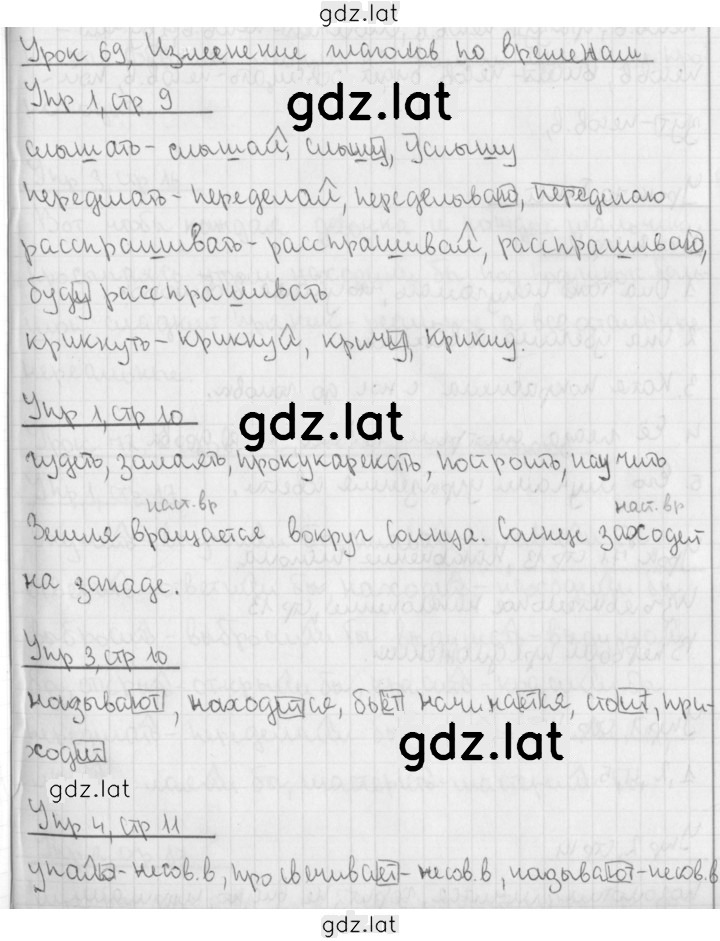 gdz.lat
Урок 69, Изменение глаголов по временам
Упр 1, стр 9
gdz.lat
слышать - слышай, слышу, услышу
переделать - переделай, переделываю, переделаю
расспрашивать - расспрашивай, расспрашиваю,
буду расспрашивать
крикнуть - крикнуй, кричу, крикну.
Упр 1, стр 10
gdz.lat
гудеть, замаять, прокукарекать, построить, научить
наст.вр наст.вр
Земля вращается вокруг Солнца. Солнце заходит
на западе.
Упр 3, стр 10
называют, находится, бьёт начинается, стоит, при-
ходит
gdz.lat
gdz.lat
Упр 4, стр 11
упало - несов.в, просвечивает - несов.в, называют - несов.в
gdz.lat